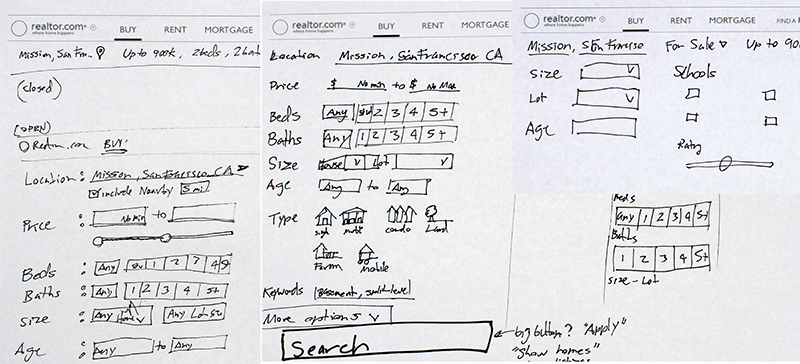 realtor.com
where home happens
BUY
RENT
MORTGAGE
Mission, San Fr..
Up to 900k, 2 beds, 2 bath
(closed)
(OPEN)
BUY
Location: Mission, San Francisco CA
Include Nearby 5 mi
Price : No min to
Beds : Any 1 2
Baths : Any 1 2 3 4 5+
Size : Any Any Lot size
Age : Any to Any
realtor.com
where home happens
BUY
RENT
MORTGAGE
Location Mission, San Francisco CA
Price $ No min to $ No Max
Beds Any 2 3 4 5+
Baths Any 1 2 3 4 5+
Size House v Lot v
Age Any to Any
Type
condo Land
Farm Mobile
Keywords Basement, split-level
More options v
Search
big button? "Apply"
"show homes"
realtor.com
where home happens
BUY
RENT
MORTGAGE
FIND A
Mission, San Francisco For Sale Up to 90
Size v Schools
Lot v
Age
Rating
Beds
Any 1 2 3 4 5+
Baths
1 2 3 4 5+
size - Lot